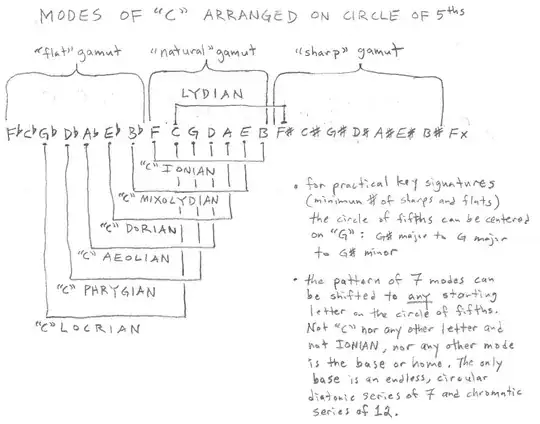 MODES OF "C" ARRANGED ON CIRCLE OF 5ths
"flat" gamut "natural" gamut "sharp" gamut
LYDIAN
F♭ C♭ G♭ D♭ A♭ E♭ B♭ F C G D A E B F# C# G# D# A# E# B# Fx
"C" IONIAN
"C" MIXOLYDIAN
"C" DORIAN
"C" AEOLIAN
"C" PHRYGIAN
"C" LOCRIAN
• for practical key signatures
(minimum # of sharps and flats)
the circle of fifths can be centered
on "G": G# major to G major
to G# minor
• the pattern of 7 modes can
be shifted to any starting
letter on the circle of fifths.
Not "C" nor any other letter and
not IONIAN, nor any other mode
is the base or home. The only
base is an endless, circular
diatonic series of 7 and chromatic
series of 12.